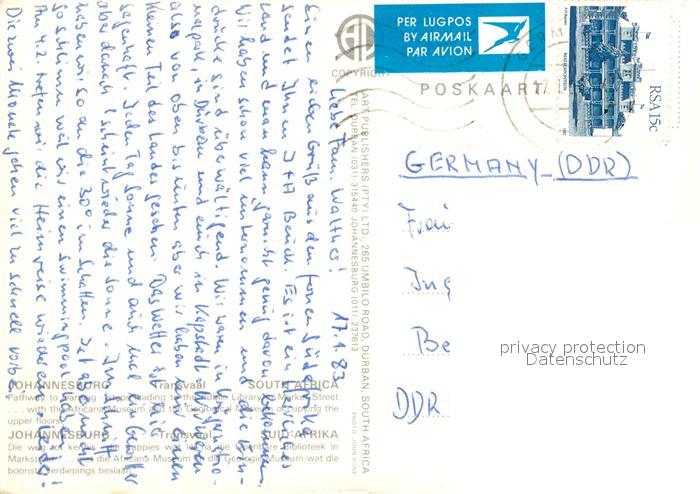 PER LUGPOS
BY AIRMAIL
PAR AVION
COPYRIGHT
POSKAART
RSA 15c
GERMANY (DDR)
Frau
Ing
Be
DDR
privacy protection
Datenschutz
17.1.83
Liebe Fam. Walther!
Einen lieben Gruß aus dem fernen Südafrika
sendet Ihnen Beate. Es ist ein herrliches
Land und man kann gar nicht genug davon
Wir haben schon viel unternommen und die Ein-
drücke sind überwältigend. Wir waren in
in Durban und auch in Kapstadt
also von oben bis unten aber wir haben nur einen
kleinen Teil des Landes gesehen. Das Wetter ist
Jeden Tag Sonne und auch mal Gewitter
aber danach scheint wieder die Sonne. Im Schnitt
haben wir so an die 30° im Schatten. Ist aber nicht
so schlimm weil wir einen Swimmingpool haben.
Am 4.2. treten wir die Heimreise wieder an. Leider!
Die zwei Monate gehen viel zu schnell vorbei.
ART PUBLISHERS (PTY) LTD., 265 UMBILO ROAD, DURBAN, SOUTH AFRICA
TEL. DURBAN (031) 315440 JOHANNESBURG (011) 237613
JOHANNESBURG Transvaal SOUTH AFRICA
Pathway to learning steps leading to the Public Library in Market Street
. . . with the Africana Museum and the Geological Museum occupying the
upper floors.
JOHANNESBURG Transvaal SUID-AFRIKA
Die weg tot kennis trappies wat lei na die Openbare Biblioteek in
Markstraat . . . met die Africana-Museum en die Geologie-Museum wat die
boonste verdiepings beslaan.